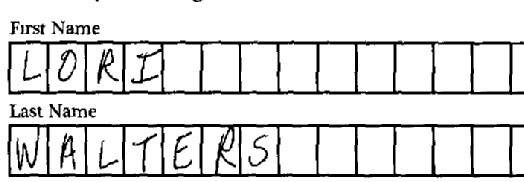 First Name
LORI
Last Name
WALTERS